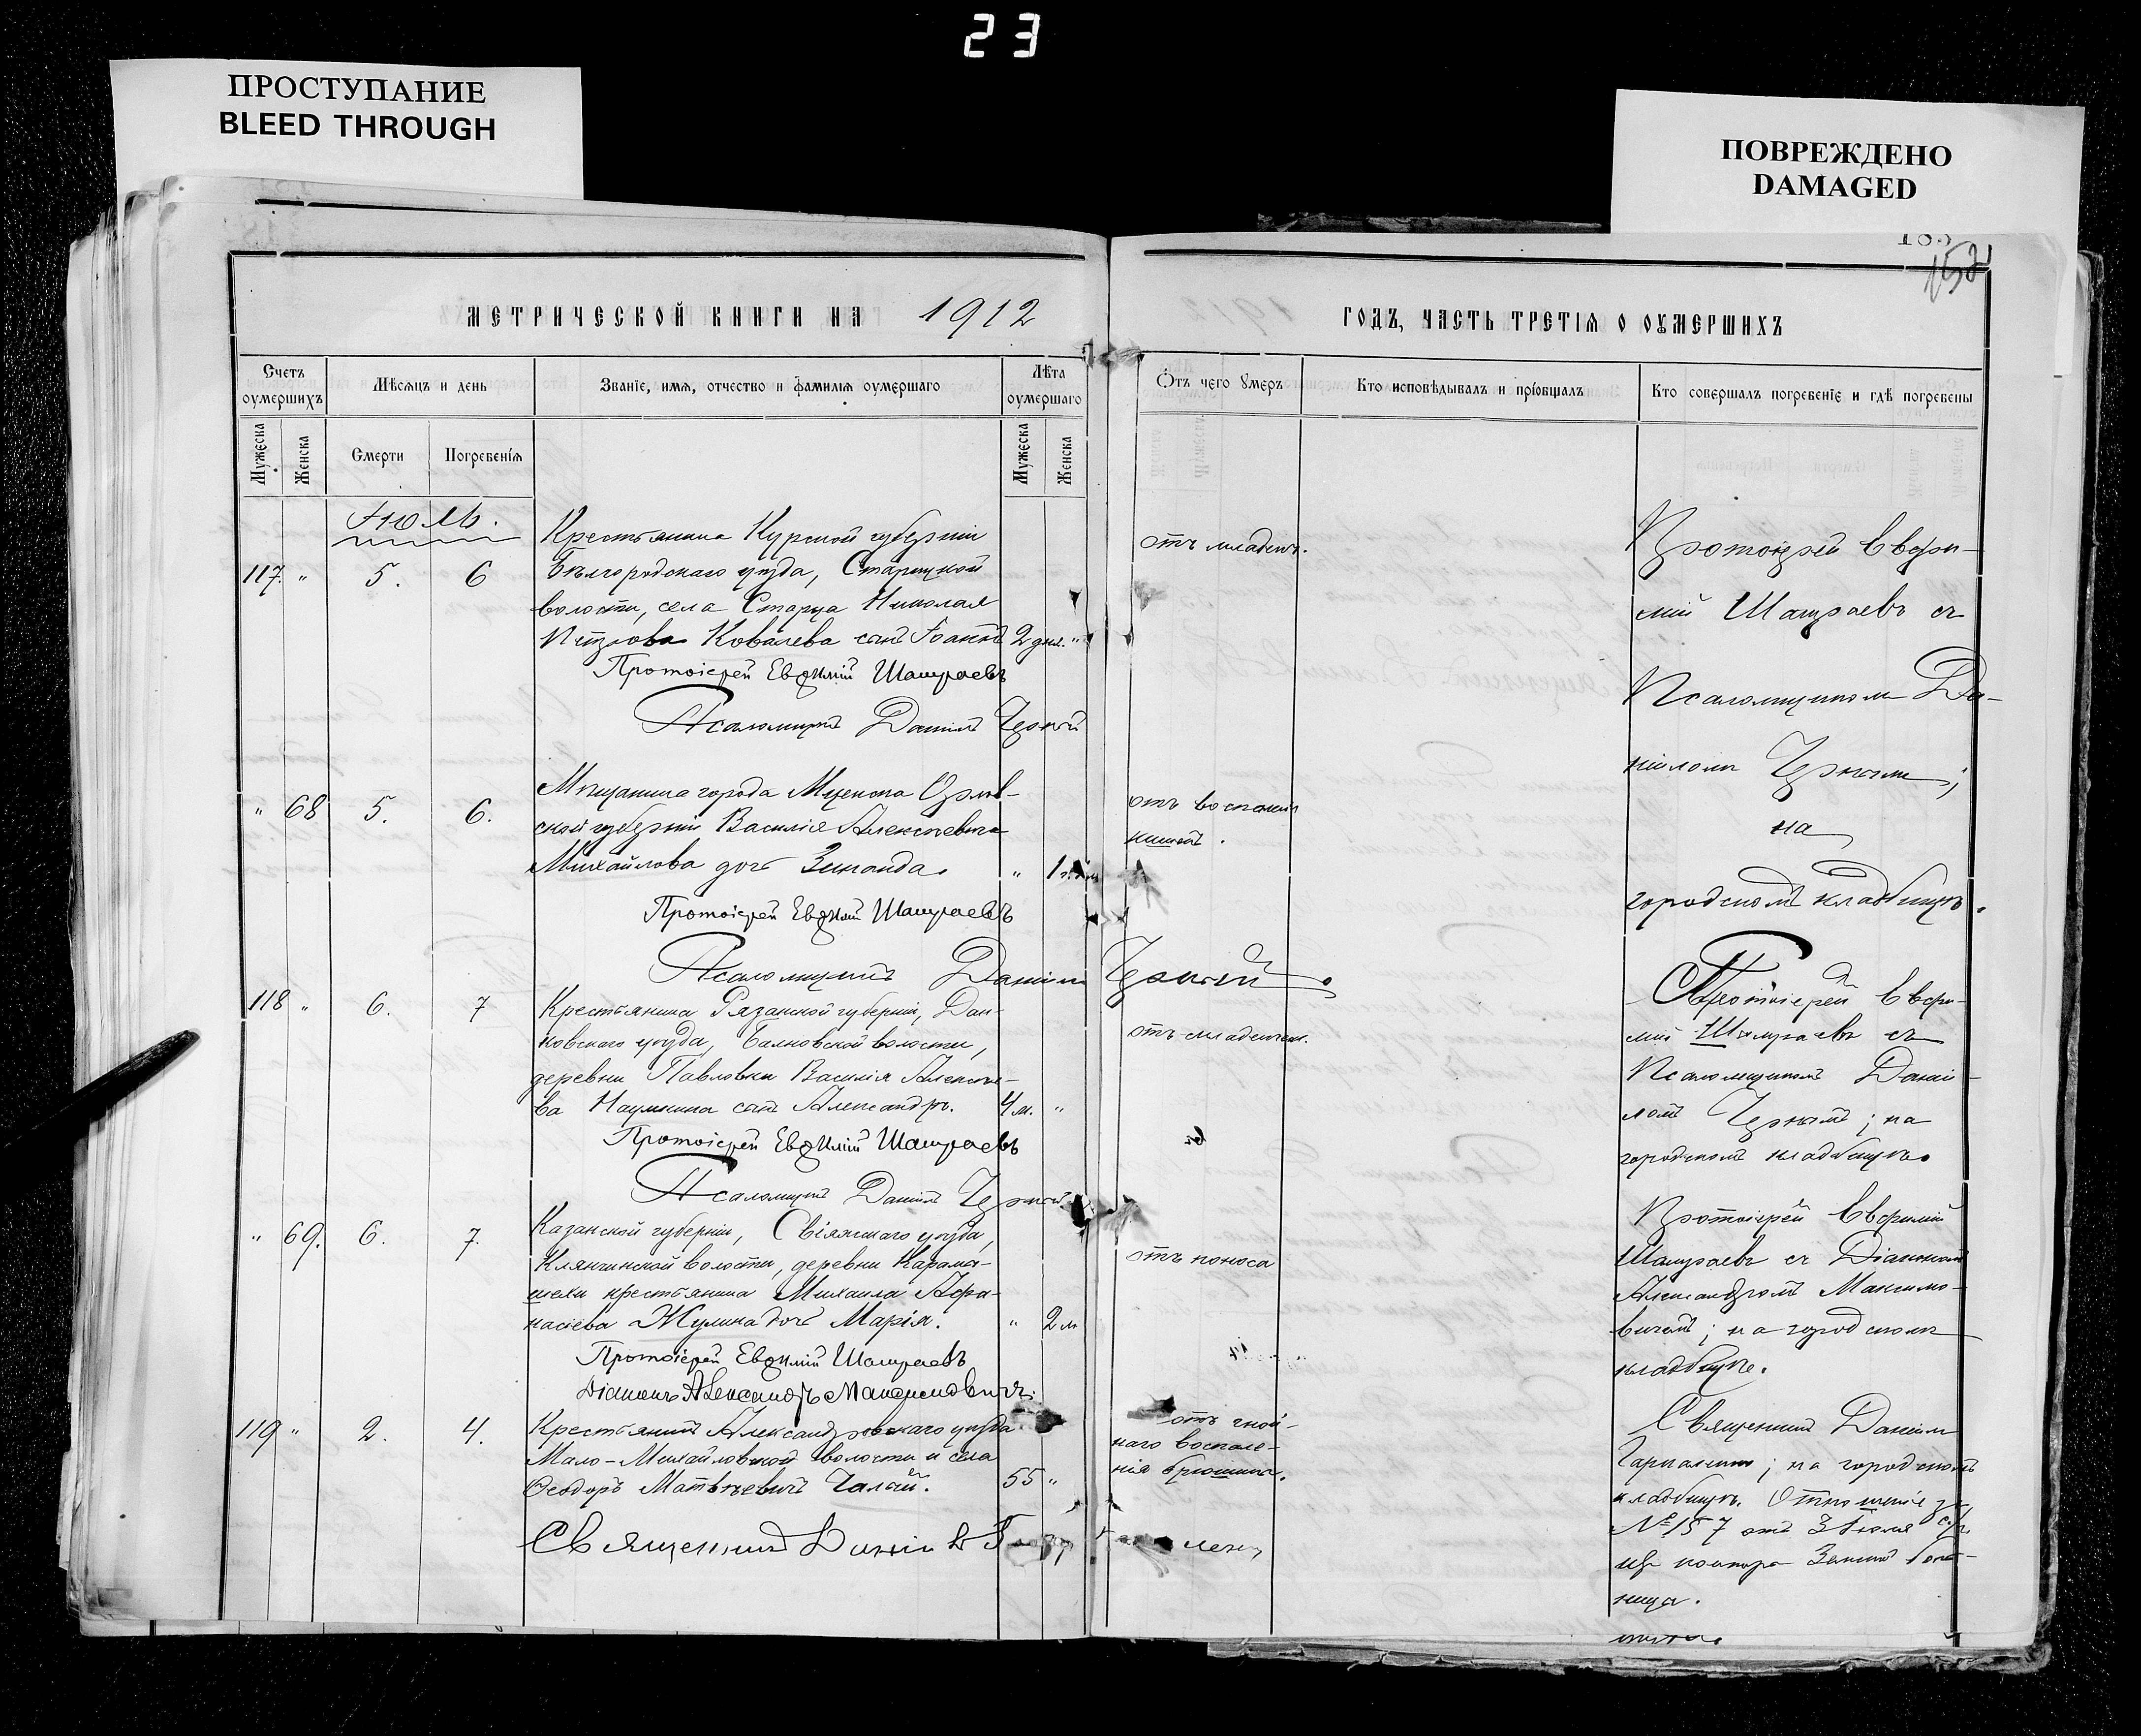 23
ПРОСТУПАНИЕ
BLEED THROUGH
ПОВРЕЖДЕНО
DAMAGED
МЕТРИЧЕСКОЙ КНИГИ НА 1912
ГОДЪ, ЧАСТЬ ТРЕТІЯ О ОУМЕРШИХЪ
Счетъ оумершихъ
Мѣсяцъ и день
Званіе, имя, отчество и фамилія оумершаго
Лѣта оумершаго
Отъ чего умеръ
Кто исповѣдывалъ и пріобщалъ
Кто совершалъ погребеніе и гдѣ погребены
Мужеска
Женска
Смерти
Погребенія
Мужеска
Женска
Іюль.
117. " 5. 6
Крестьянина Курской губерніи
Бѣлгородскаго уѣзда, Старицкой
волости, села Старица Николая
Петрова Ковалева сынъ Іоаннъ 2 дня. "
отъ младенч.
Протоіерей Евфимій Шашраевъ
Псаломщикъ Даніилъ Черный
Протоіерей Евфи-
мій Шашраевъ съ
Псаломщикомъ Да-
ніиломъ Чернымъ;
на
городскомъ кладбищѣ.
" 68 5. 6.
Мѣщанина города Мценска Орлов-
ской губерніи Василія Алексѣевича
Михайлова дочь Зинаида. " 1
отъ воспаленія
кишекъ.
Протоіерей Евфимій Шашраевъ
Псаломщикъ Даніилъ Черный.
118 " 6. 7
Крестьянина Рязанской губерніи, Дан-
ковскаго уѣзда, волости,
деревни Павловки Василія Алексѣе-
ва Наумкина сынъ Александръ. 4 м. "
отъ младенческ.
Протоіерей Евфимій Шашраевъ
Псаломщикъ Даніилъ Черный
Протоіерей Евфи-
мій Шашраевъ съ
Псаломщикомъ Даніи-
ломъ Чернымъ; на
городскомъ кладбищѣ.
" 69. 6. 7.
Казанской губерніи, Свіяжскаго уѣзда,
Клянчинской волости, деревни Карамы-
шехи крестьянина Михаила Афа-
насіева Жулина дочь Марія. " 2 м
отъ поноса
Протоіерей Евфимій Шашраевъ
Діаконъ Александръ Максимовичъ.
Протоіерей Евфимій
Шашраевъ съ Діакономъ
Александромъ Максимо-
вичемъ; на городскомъ
кладбищѣ.
119 " 2. 4.
Крестьянинъ Александровскаго уѣзда
Мало-Михайловской волости и села
Ѳеодоръ Матвѣевичъ Чалый. 55 "
отъ гной-
наго воспале-
нія брюшины.
Священникъ Даніилъ
Священникъ Даніилъ
; на городскомъ
кладбищѣ. Отношеніе за
№ 157 отъ 3 Іюля с/г.
контора Земской боль-
ницы.